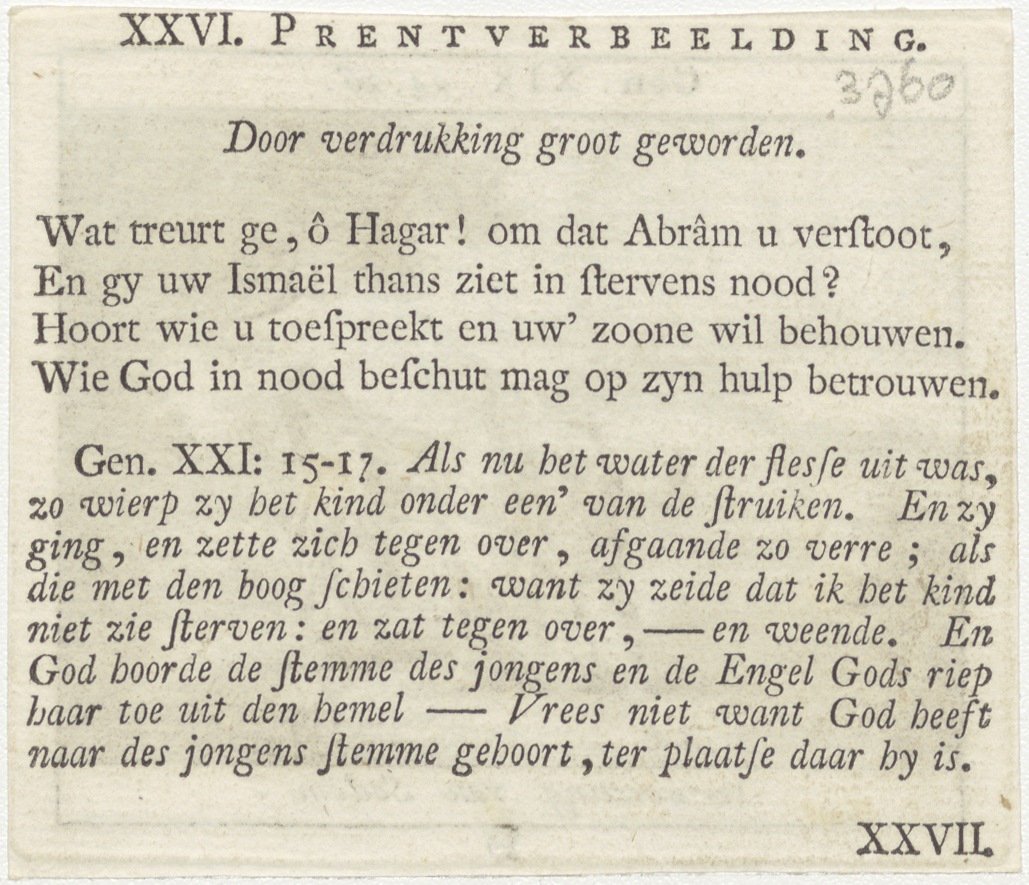 XXVI. PRENTVERBEELDING.
3760
Door verdrukking groot geworden.
Wat treurt ge, ô Hagar! om dat Abrâm u verſtoot,
En gy uw Ismaël thans ziet in ſtervens nood?
Hoort wie u toeſpreekt en uw' zoone wil behouwen.
Wie God in nood beſchut mag op zyn hulp betrouwen.
Gen. XXI: 15-17. Als nu het water der flesſe uit was,
zo wierp zy het kind onder een' van de ſtruiken. En zy
ging, en zette zich tegen over, afgaande zo verre ; als
die met den boog ſchieten: want zy zeide dat ik het kind
niet zie ſterven: en zat tegen over, — en weende. En
God hoorde de ſtemme des jongens en de Engel Gods riep
haar toe uit den hemel — Vrees niet want God heeft
naar des jongens ſtemme gehoort, ter plaatſe daar hy is.
XXVII.